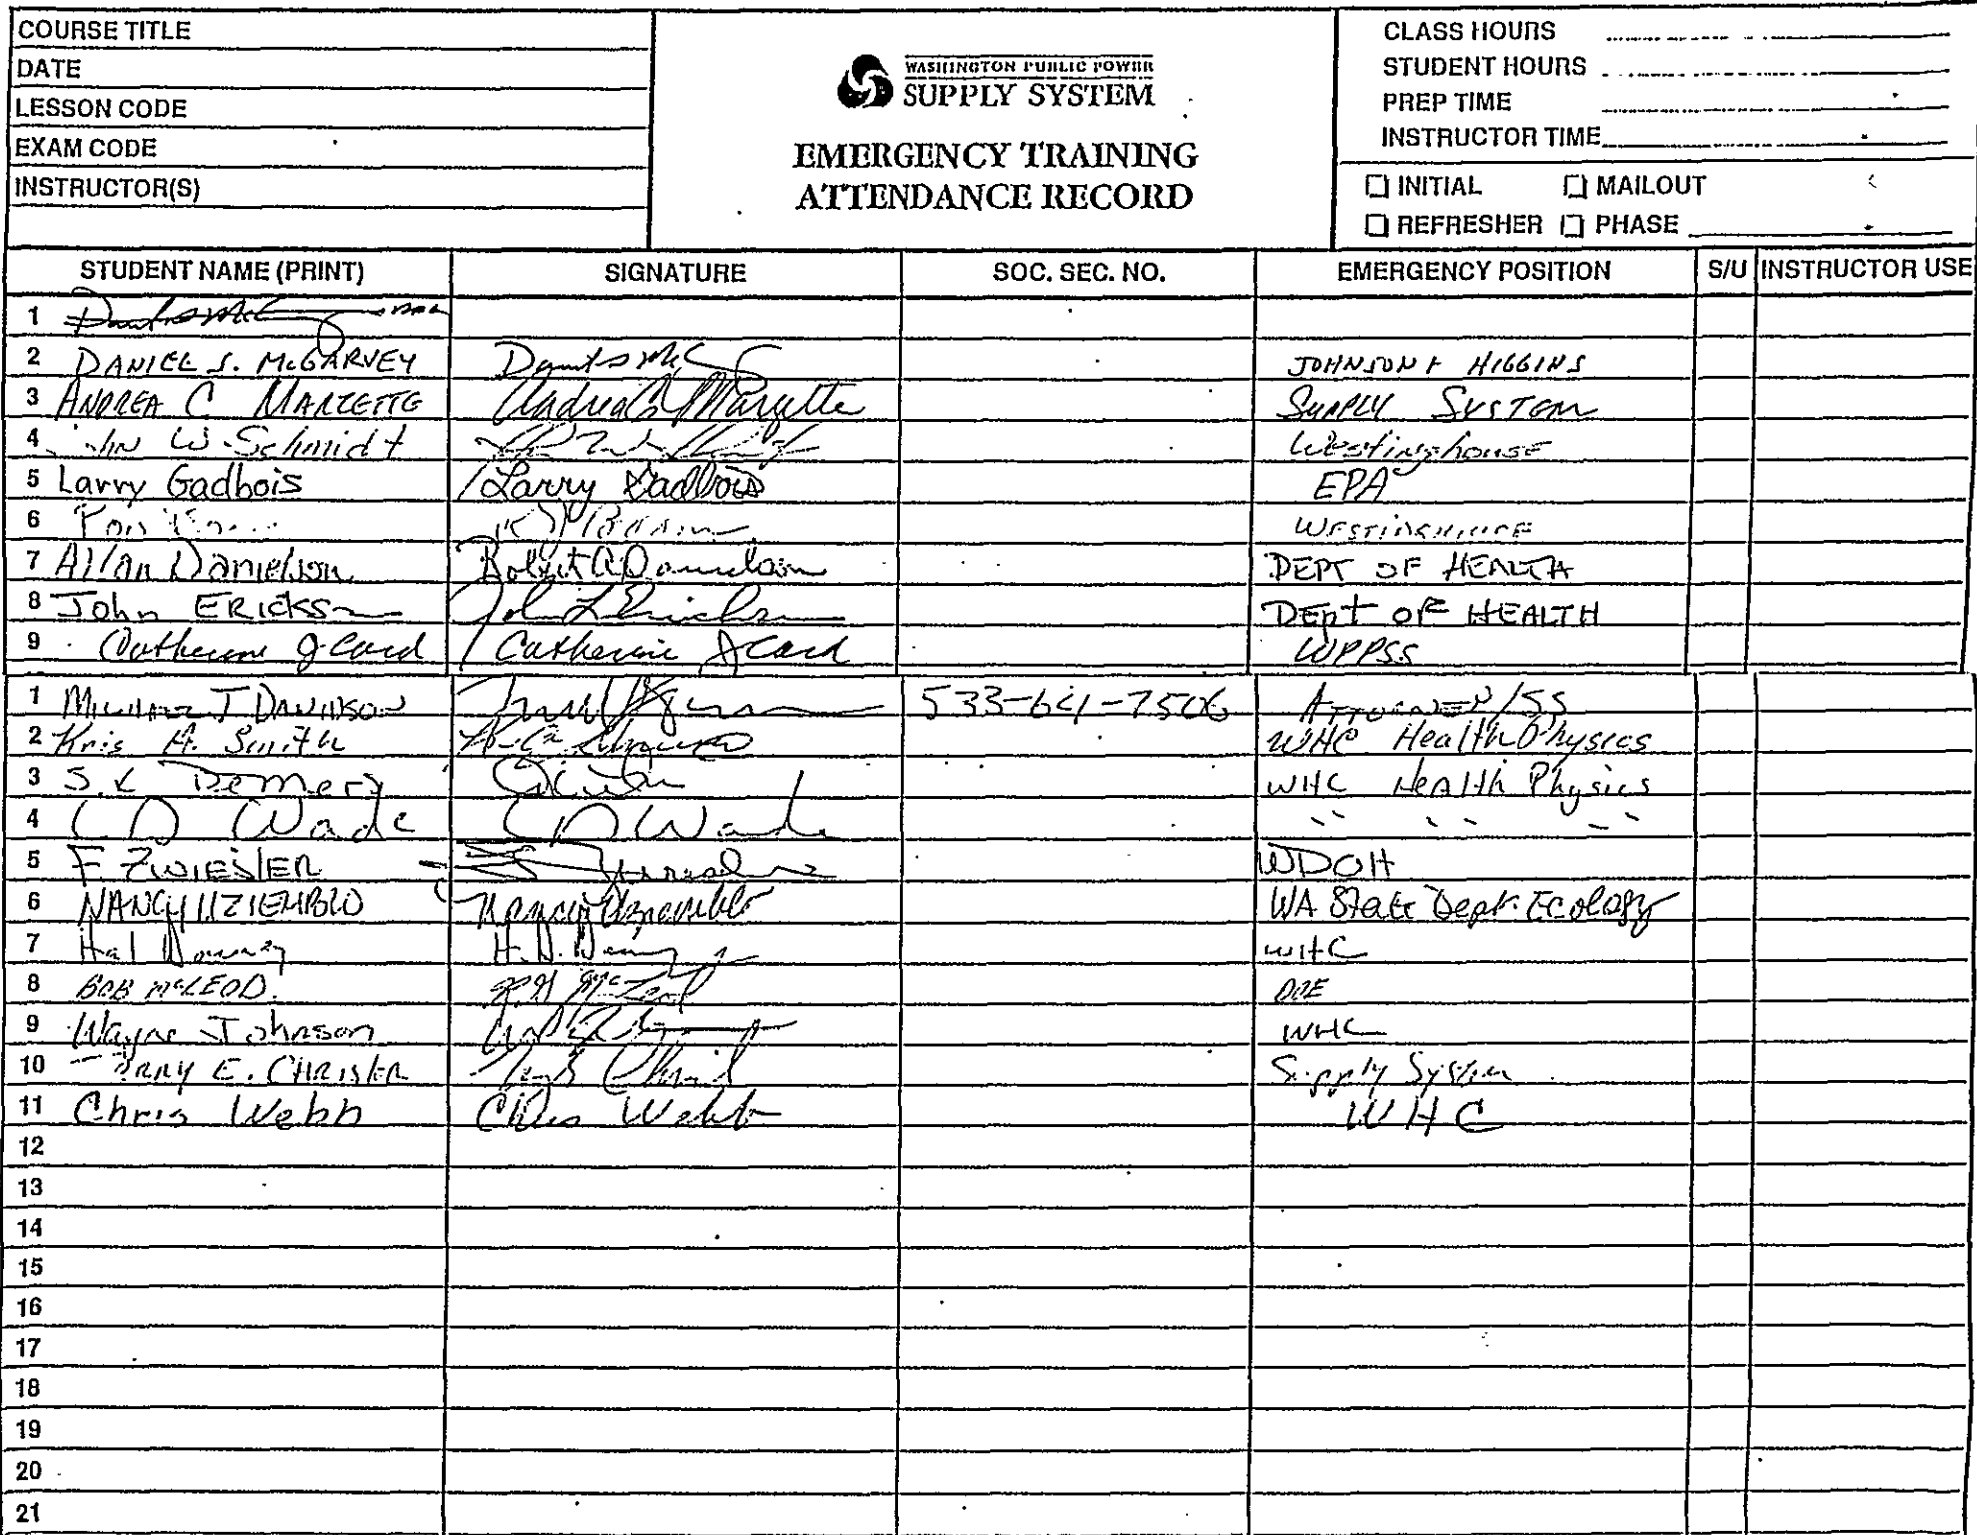 COURSE TITLE
DATE
LESSON CODE
EXAM CODE
INSTRUCTOR(S)
WASHINGTON PUBLIC POWER
SUPPLY SYSTEM
EMERGENCY TRAINING
ATTENDANCE RECORD
CLASS HOURS
STUDENT HOURS
PREP TIME
INSTRUCTOR TIME
INITIAL MAILOUT
REFRESHER PHASE
STUDENT NAME (PRINT) SIGNATURE SOC. SEC. NO. EMERGENCY POSITION S/U INSTRUCTOR USE
1
2 DANIEL S. McGARVEY JOHNSON & HIGGINS
3 ANDREA C MARZETTE Andrea C Marzette SUPPLY SYSTEM
4 W. Schmidt Westinghouse
5 Larry Gadbois Larry Gadbois EPA
6 WESTINGHOUSE
7 Allan Danielson Robert A Danielson DEPT OF HEALTH
8 John ERICKSON John L Erickson DEPT OF HEALTH
9 Catherine J Card Catherine J Card WPPSS
1 MICHAEL J DAVIDSON ATTORNEY/SS
2 Kris A. Smith WHC Health Physics
3 S.K DeMers WHC Health Physics
4 CD Wade CD Wade " " "
5 F. ZWIESLER WDOH
6 NANCY UZIEMBLO Nancy Uziemblo WA State Dept. Ecology
7 Hal Downey H.D. Downey WHC
8 BOB McLEOD. McLeod DOE
9 Wayne Johnson WHC
10 E. CHRISLER Supply System
11 Chris Webb Chris Webb WHC
12
13
14
15
16
17
18
19
20
21